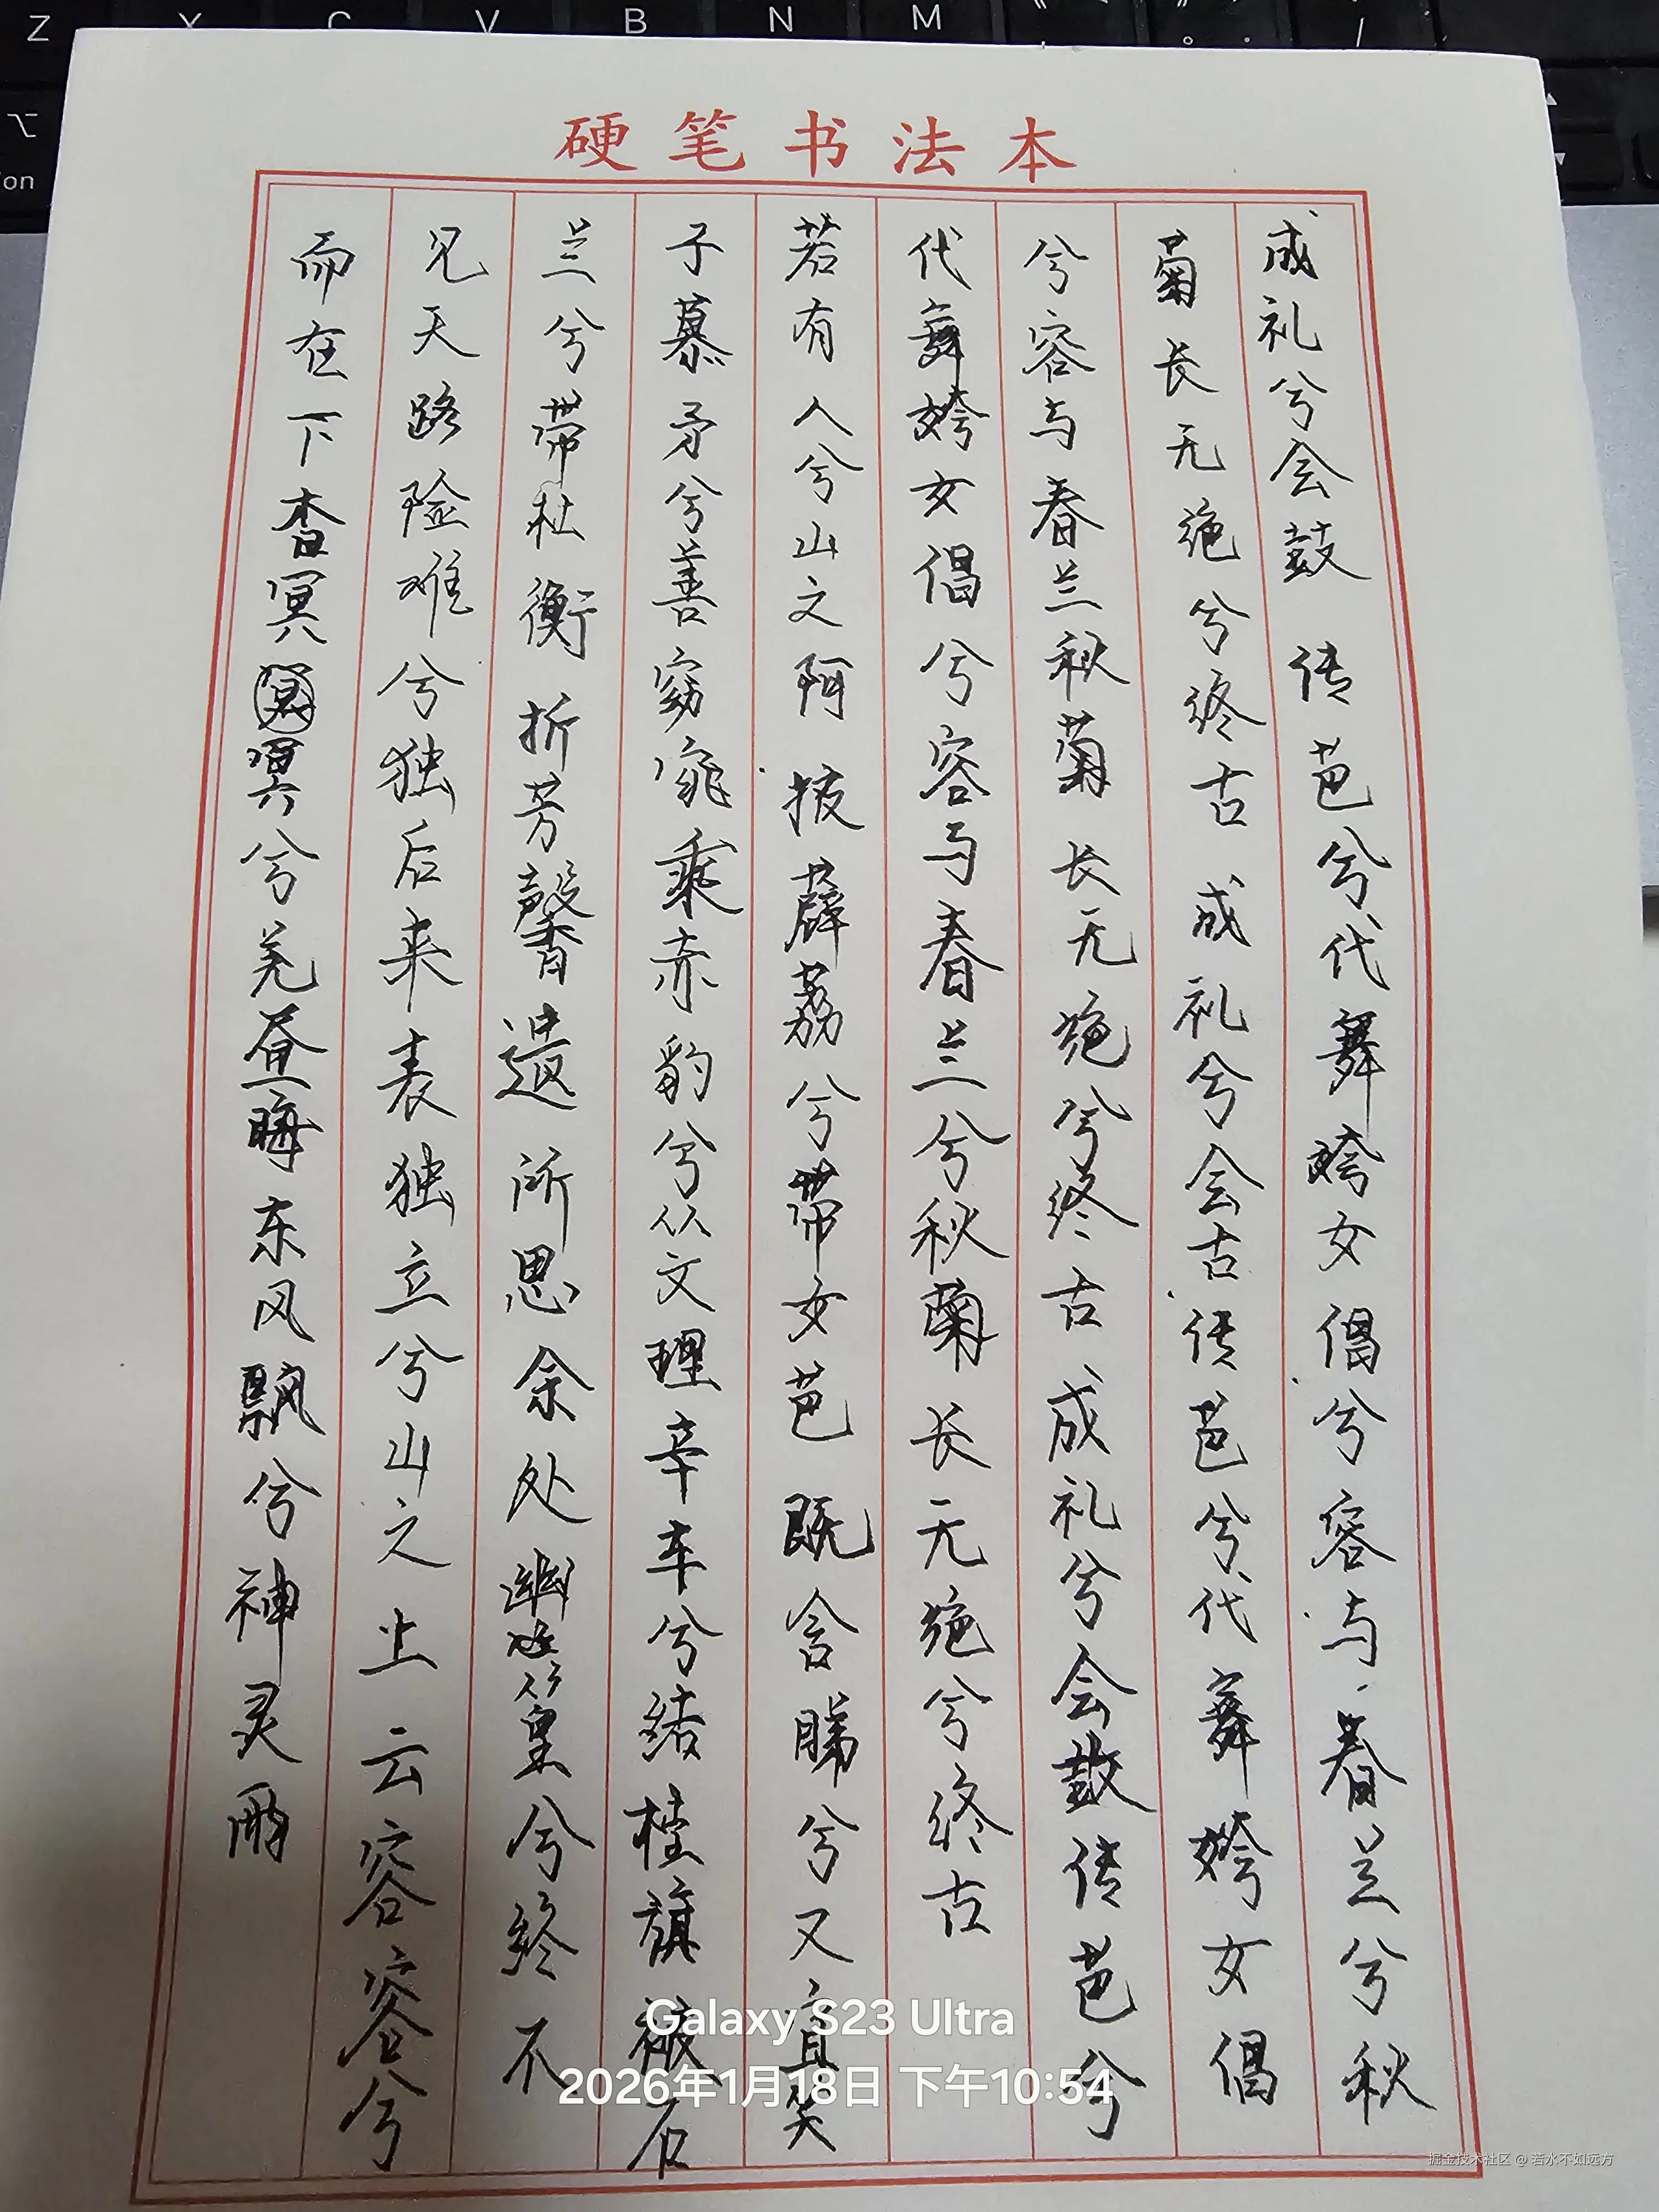 硬笔书法本
成礼兮会鼓 传芭兮代舞姱女倡兮容与春兰兮秋
菊长无绝兮终古 成礼兮会古传芭兮代舞姱女倡
兮容与春兰秋菊长无绝兮终古 成礼兮会鼓传芭兮
代舞姱女倡兮容与春兰兮秋菊长无绝兮终古
若有人兮山之阿 披薜荔兮带女芭 既含睇兮又宜笑
子慕矛兮善窈窕乘赤豹兮从文理辛车兮结桂旗被石
兰兮带杜衡折芳馨遗所思余处幽篁兮终不
见天路险难兮独后来表独立兮山之上云容容兮
而在下杳冥冥兮羌昼晦东风飘兮神灵雨
Galaxy S23 Ultra
2026年1月18日 下午10:54
掘金技术社区 @ 若水不如远方
Z X C V B N M
⌥
on